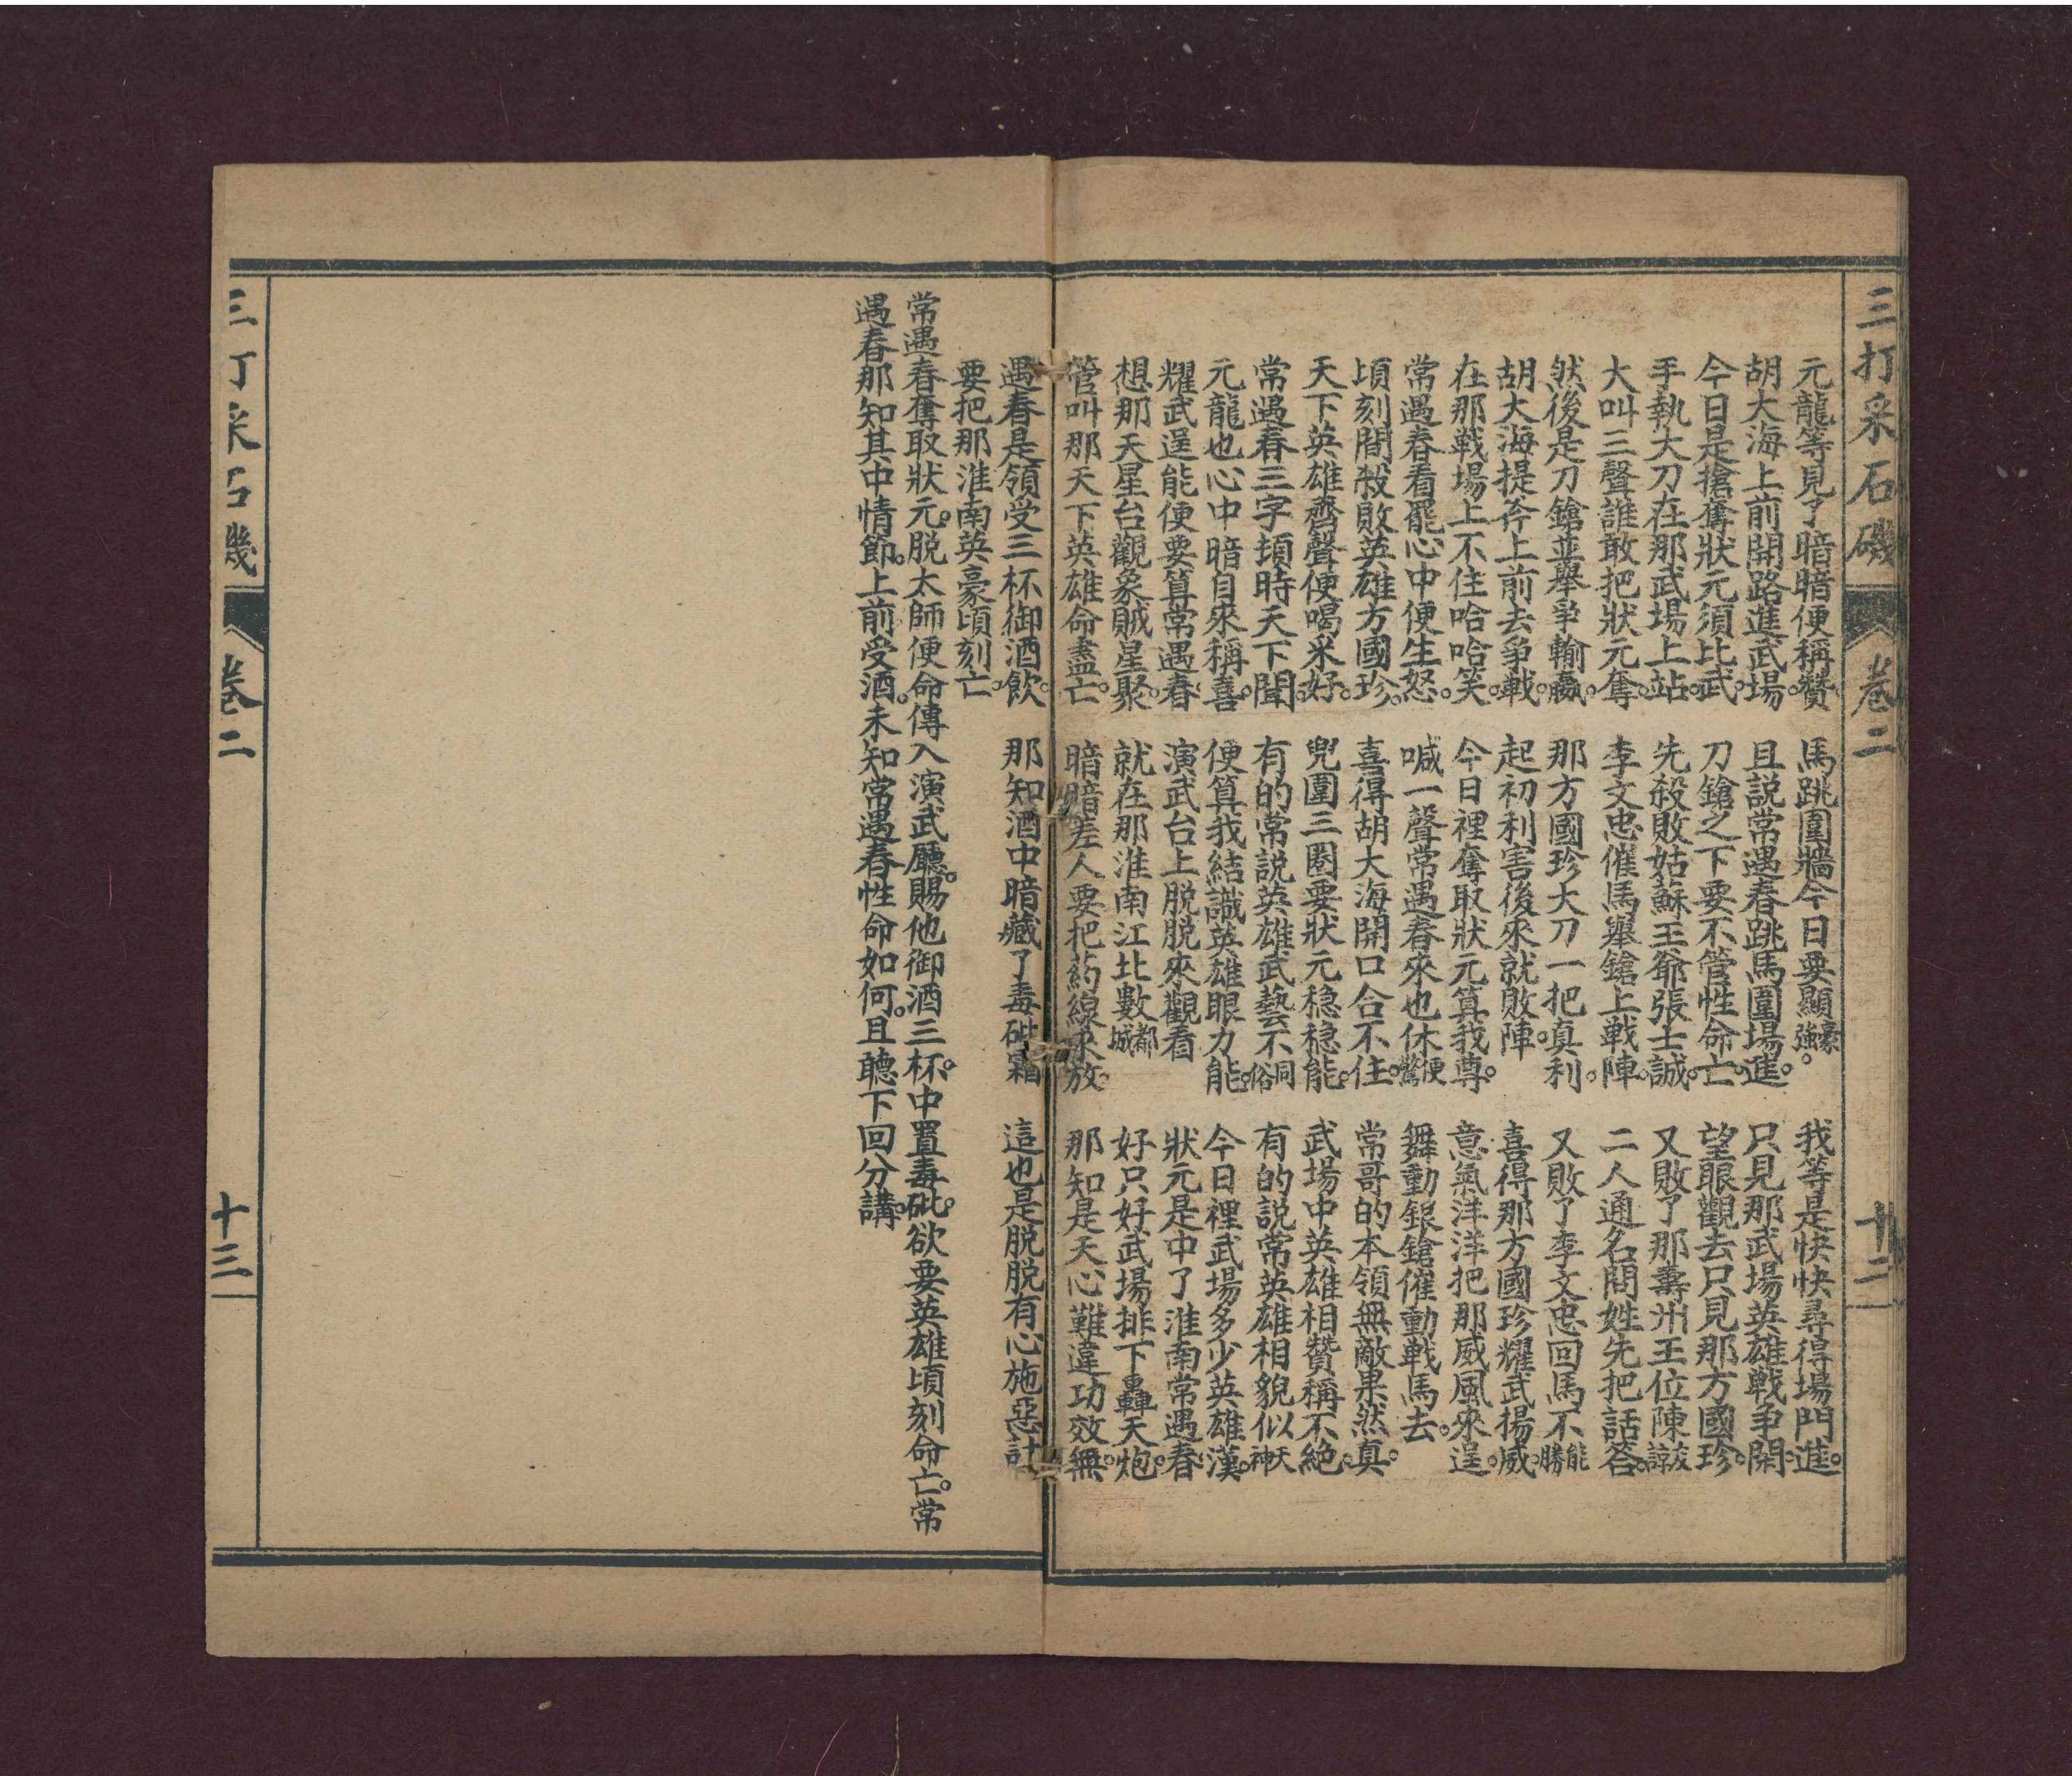 三打采石磯 卷二 十二
元龍等見了暗暗便稱贊。 馬跳圍牆今日要顯豪強。 我等是快快尋得場門進。
胡大海上前開路進武場。 且説常遇春跳馬圍場進。 只見那武場英雄戰爭開。
今日是搶奪狀元須比武。 刀鎗之下要不管性命亡。 望眼觀去只見那方國珍。
手執大刀在那武場上站。 先殺敗姑蘇王爺張士誠。 又敗了那壽州王位陳友諒。
大叫三聲誰敢把狀元奪。 李文忠催馬舉鎗上戰陣。 二人通名問姓先把話答。
然後是刀鎗並舉爭輸贏。 那方國珍大刀一把真利。 又敗了李文忠回馬不能勝
胡大海提斧上前去爭戰。 起初利害後來就敗陣。 喜得那方國珍耀武揚威。
在那戰場上不住哈哈笑。 今日裡奪取狀元算我尊。 意氣洋洋把那威風來逞。
常遇春看罷心中便生怒。 喊一聲常遇春來也休便驚 舞動銀鎗催動戰馬去。
頃刻間殺敗英雄方國珍。 喜得胡大海開口合不住。 常哥的本領無敵果然真。
天下英雄齊聲便喝采好。 兜圍三圈要狀元稳稳能。 武場中英雄相贊稱不絶。
常遇春三字頃時天下聞。 有的常説英雄武藝不同俗 有的説常英雄相貌似天神
元龍也心中暗自來稱喜。 便算我結識英雄眼力能。 今日裡武場多少英雄漢。
耀武逞能便要算常遇春 演武台上脱脱來觀看 狀元是中了淮南常遇春。
想那天星台觀象賊星聚。 就在那淮南江北數都城 好只好武場排下轟天炮。
管叫那天下英雄命盡亡。 暗暗差人要把葯線來放。 那知是天心難違功效無。
遇春是領受三杯御酒飲。 那知酒中暗藏了毒砒霜 這也是脱脱有心施惡計
要把那淮南英豪頃刻亡。
常遇春奪取狀元。脱太師便命傳入演武廳。賜他御酒三杯。中置毒砒。欲要英雄頃刻命亡。常
遇春那知其中情節。上前受酒。未知常遇春性命如何。且聽下回分講。
三打采石磯 卷二 十三